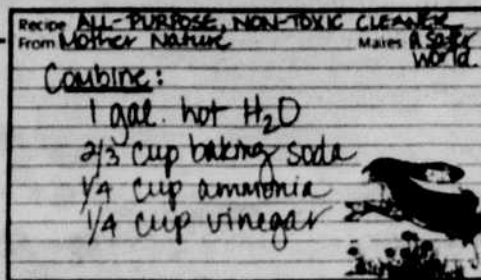 Recipe ALL-PURPOSE, NON-TOXIC CLEANER
From Mother Nature Makes A Safer World.
Combine:
1 gal. hot H₂O
2/3 cup baking soda
1/4 cup ammonia
1/4 cup vinegar